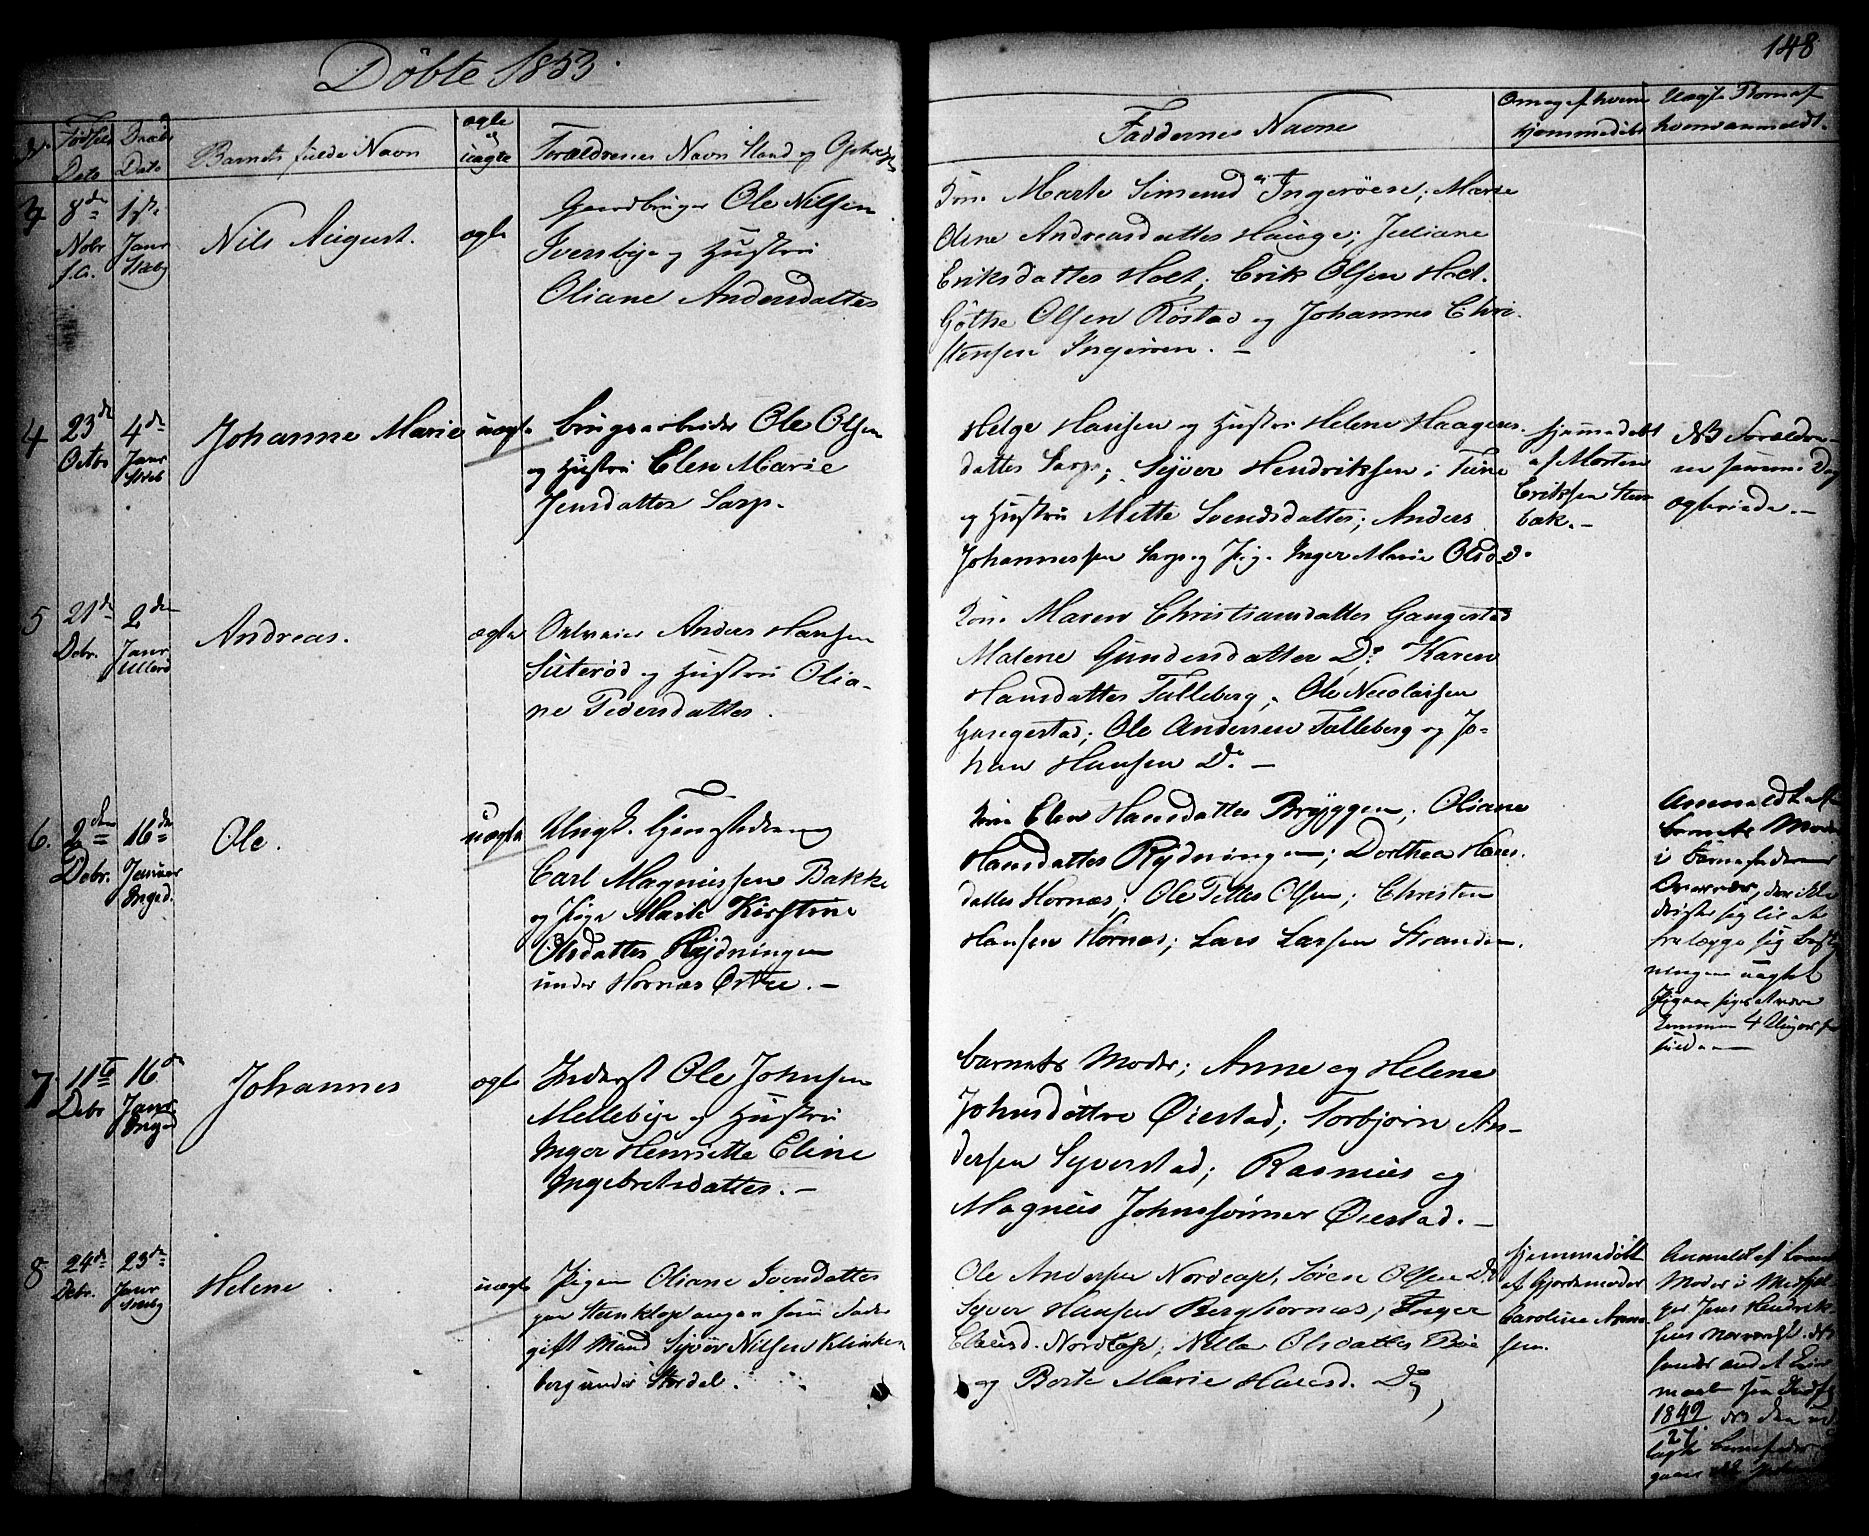 Döbte 1853.
148
No
Fødsels Dato
Daabs Dato
Barnets fulde Navn
ægte og uægte
Forældrenes Navn Stand og
Faddernes Navne
Om og af hvem hjemmedøbt
Uægte Børn af hvem anmeldt.
3
8de Nobr f.A.
1ste Janr
Nils August.
ægte
Gaardbruger Ole Nilsen
Iversbye og Hustru
Oliane Andersdatter
Kon. Marte Simensd Ingerøen; Marie
Oline Andreasdatter Hauge; Juliane
Eriksdatter Holt; Erik Olsen Holt.
Göthe Olsen Röstad og Johannes Chri
stensen Ingeröen. –
4
23de Octbr
4de Janr
Johanne Marie
uægte
Brugsarbeider Ole Olsen
og Hustru Elen Marie
Jensdatter Sarp.
Helge Hansen og Hustru Helene Haagens
datter Sarp; Syver Hendriksen i Tune
og Hustru Mette Svendsdatter; Anders
Johannessen Sarp og Pig. Inger Marie Olsd. D.
hjemmedöbt
af Morten
Eriksen Sten
bak. –
NB Forældre
ne samme Dag
ægteviede. –
5
21de Debr.
2den Janr Ullerø
Andreas.
ægte
Anders Hansen
Suterød og Hustru Olia-
ne Pedersdatter.
Kon. Maren Christiansdatter Gangestad
Malene Gundersdatter Do. Karen
Hansdatter Talleberg; Ole Nicolaisen
Gangestad; Ole Andersen Talleberg og Jo-
han Hansen Do. –
6.
2den Debr.
16de Januar Inged.
Ole.
uægte
Ungk.
Carl Magnussen Bakke
og Pige Marte Kirstine
Olsdatter Rydningen
under Hornæs Østre. –
Kon. Elen Hansdatter Bryggen; Oliane
Hansdatter Rydningen; Dorthea Hans
datter Hornæs; Ole Petter Olsen; Christen
Hansen Hornæs; Lars Larsen Stranden.
Anmeldt af
barnets Moder
i Barnefaderens
der ikke
sig til at
sig
ningen uagtet
Pigen siges at være
4
7
11te Debr
16de Janr Inged
Johannes
ægte
Inderst Ole Johnsen
Mellebye og Hustru
Inger Henriette Eline
Ingebretsdatter. –
barnets Moder; Anne og Helene
Johnsdöttre Øiestad; Torbjörn An-
dersen Syverstad; Rasmus og
Magnus Johnssönner Øiestad. –
8
24de Debr.
23de Janr
Helene.
uægte
Pigen Oliane Svendsdatter
paa Stenklep angav som Fader
gift Mand Syver Nilsen Klinken
berg under Stordal.
Ole Andersen Nordcap, Sören Olsen Do
Syver Hansen Berghornæs; Inger
Clausd. Nordcap; Nella Olsdatter Bøe
og Berte Marie Hansd. Do
hjemmedöbt
af Gjordemoder
Caroline
sen.
Anmeldt af barnets
Moder i
Jens Hendrik-
sens
1849
27